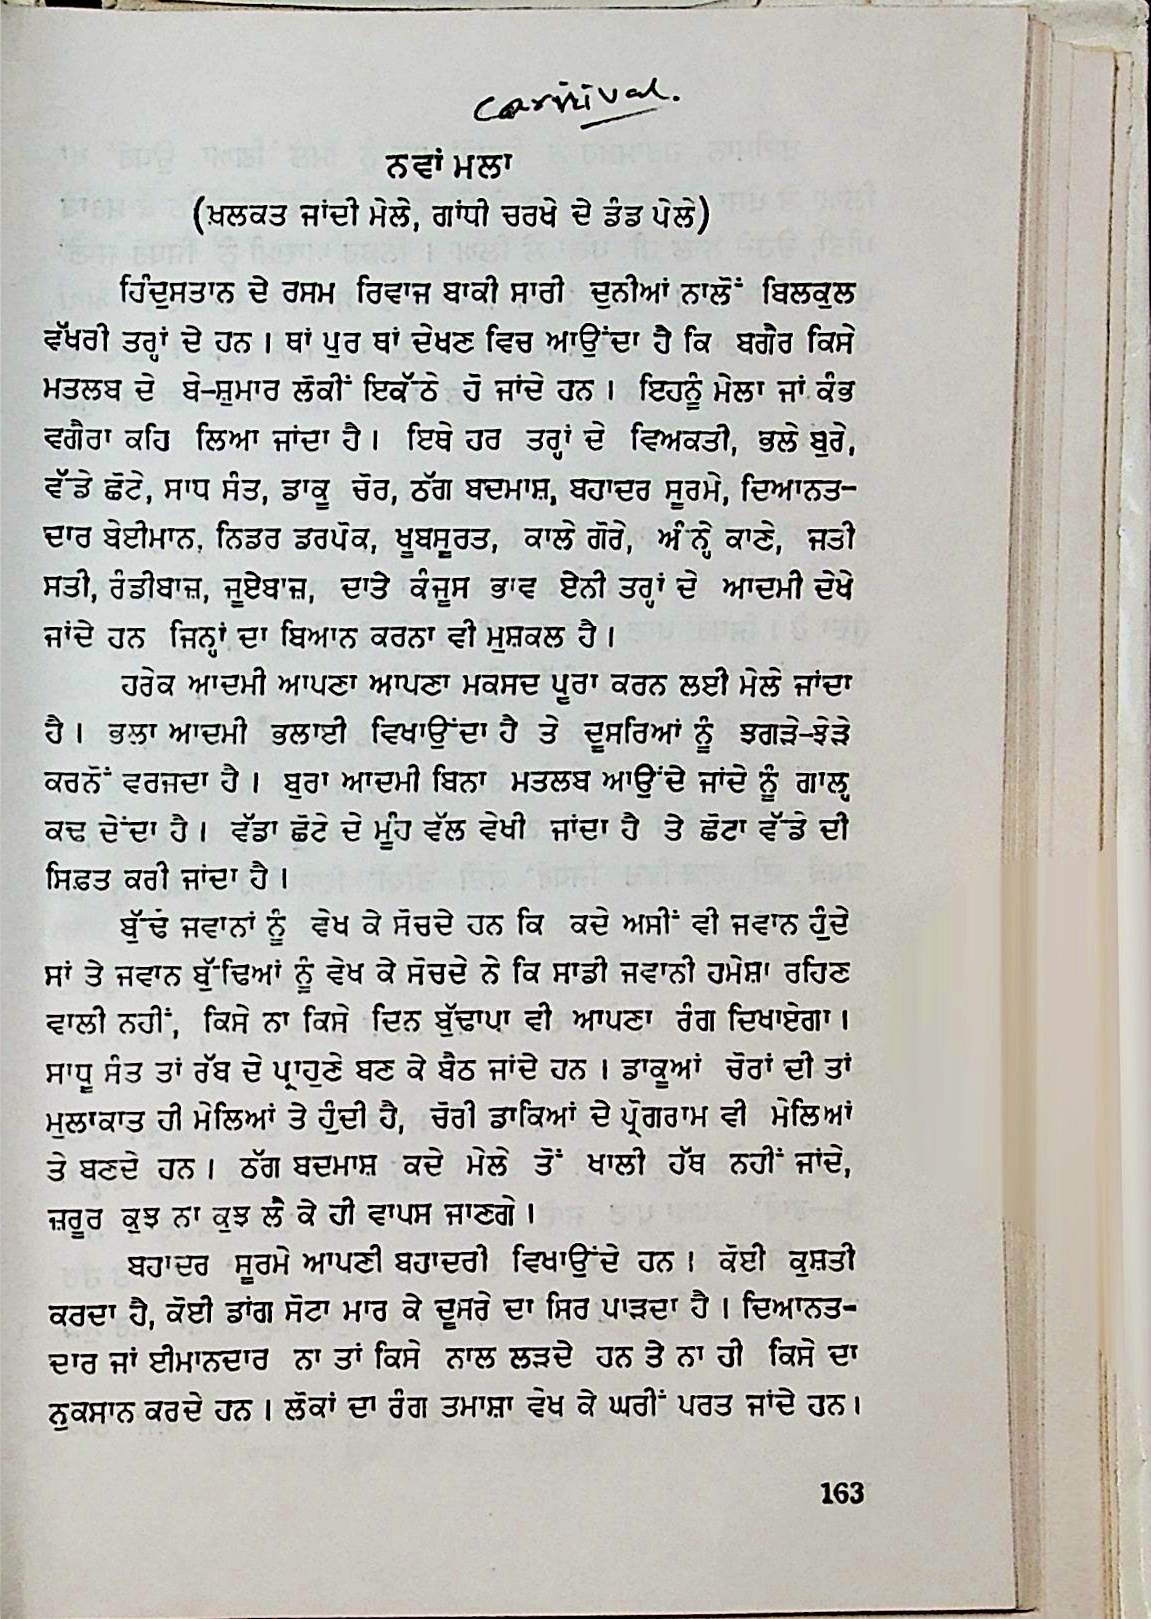 Carnival.
ਨਵਾਂ ਮਲਾ
(ਖ਼ਲਕਤ ਜਾਂਦੀ ਮੇਲੇ, ਗਾਂਧੀ ਚਰਖੇ ਦੇ ਡੰਡ ਪੇਲੇ)
ਹਿੰਦੁਸਤਾਨ ਦੇ ਰਸਮ ਰਿਵਾਜ ਬਾਕੀ ਸਾਰੀ ਦੁਨੀਆਂ ਨਾਲੋਂ ਬਿਲਕੁਲ
ਵੱਖਰੀ ਤਰ੍ਹਾਂ ਦੇ ਹਨ । ਥਾਂ ਪੁਰ ਥਾਂ ਦੇਖਣ ਵਿਚ ਆਉਂਦਾ ਹੈ ਕਿ ਬਗੈਰ ਕਿਸੇ
ਮਤਲਬ ਦੇ ਬੇ-ਸ਼ੁਮਾਰ ਲੋਕੀਂ ਇਕੱਠੇ ਹੋ ਜਾਂਦੇ ਹਨ । ਇਹਨੂੰ ਮੇਲਾ ਜਾਂ ਕੰਭ
ਵਗੈਰਾ ਕਹਿ ਲਿਆ ਜਾਂਦਾ ਹੈ । ਇਥੇ ਹਰ ਤਰ੍ਹਾਂ ਦੇ ਵਿਅਕਤੀ, ਭਲੇ ਬੁਰੇ,
ਵੱਡੇ ਛੋਟੇ, ਸਾਧ ਸੰਤ, ਡਾਕੂ ਚੋਰ, ਠੱਗ ਬਦਮਾਸ਼, ਬਹਾਦਰ ਸੂਰਮੇ, ਦਿਆਨਤ-
ਦਾਰ ਬੇਈਮਾਨ, ਨਿਡਰ ਡਰਪੋਕ, ਖੂਬਸੂਰਤ, ਕਾਲੇ ਗੋਰੇ, ਅੰਨ੍ਹੇ ਕਾਣੇ, ਜਤੀ
ਸਤੀ, ਰੰਡੀਬਾਜ਼, ਜੂਏਬਾਜ਼, ਦਾਤੇ ਕੰਜੂਸ ਭਾਵ ਏਨੀ ਤਰ੍ਹਾਂ ਦੇ ਆਦਮੀ ਦੇਖੇ
ਜਾਂਦੇ ਹਨ ਜਿਨ੍ਹਾਂ ਦਾ ਬਿਆਨ ਕਰਨਾ ਵੀ ਮੁਸ਼ਕਲ ਹੈ ।
ਹਰੇਕ ਆਦਮੀ ਆਪਣਾ ਆਪਣਾ ਮਕਸਦ ਪੂਰਾ ਕਰਨ ਲਈ ਮੇਲੇ ਜਾਂਦਾ
ਹੈ । ਭਲਾ ਆਦਮੀ ਭਲਾਈ ਵਿਖਾਉਂਦਾ ਹੈ ਤੇ ਦੂਸਰਿਆਂ ਨੂੰ ਝਗੜੇ-ਝੇੜੇ
ਕਰਨੋਂ ਵਰਜਦਾ ਹੈ । ਬੁਰਾ ਆਦਮੀ ਬਿਨਾ ਮਤਲਬ ਆਉਂਦੇ ਜਾਂਦੇ ਨੂੰ ਗਾਲ੍ਹ
ਕਢ ਦੇਂਦਾ ਹੈ । ਵੱਡਾ ਛੋਟੇ ਦੇ ਮੂੰਹ ਵੱਲ ਵੇਖੀ ਜਾਂਦਾ ਹੈ ਤੇ ਛੋਟਾ ਵੱਡੇ ਦੀ
ਸਿਫ਼ਤ ਕਰੀ ਜਾਂਦਾ ਹੈ ।
ਬੁੱਢੇ ਜਵਾਨਾਂ ਨੂੰ ਵੇਖ ਕੇ ਸੋਚਦੇ ਹਨ ਕਿ ਕਦੇ ਅਸੀਂ ਵੀ ਜਵਾਨ ਹੁੰਦੇ
ਸਾਂ ਤੇ ਜਵਾਨ ਬੁੱਢਿਆਂ ਨੂੰ ਵੇਖ ਕੇ ਸੋਚਦੇ ਨੇ ਕਿ ਸਾਡੀ ਜਵਾਨੀ ਹਮੇਸ਼ਾ ਰਹਿਣ
ਵਾਲੀ ਨਹੀਂ, ਕਿਸੇ ਨਾ ਕਿਸੇ ਦਿਨ ਬੁੱਢਾਪਾ ਵੀ ਆਪਣਾ ਰੰਗ ਦਿਖਾਏਗਾ ।
ਸਾਧੂ ਸੰਤ ਤਾਂ ਰੱਬ ਦੇ ਪ੍ਰਾਹੁਣੇ ਬਣ ਕੇ ਬੈਠ ਜਾਂਦੇ ਹਨ । ਡਾਕੂਆਂ ਚੋਰਾਂ ਦੀ ਤਾਂ
ਮੁਲਾਕਾਤ ਹੀ ਮੇਲਿਆਂ ਤੇ ਹੁੰਦੀ ਹੈ, ਚੋਰੀ ਡਾਕਿਆਂ ਦੇ ਪ੍ਰੋਗਰਾਮ ਵੀ ਮੇਲਿਆਂ
ਤੇ ਬਣਦੇ ਹਨ । ਠੱਗ ਬਦਮਾਸ਼ ਕਦੇ ਮੇਲੇ ਤੋਂ ਖਾਲੀ ਹੱਥ ਨਹੀਂ ਜਾਂਦੇ,
ਜ਼ਰੂਰ ਕੁਝ ਨਾ ਕੁਝ ਲੈ ਕੇ ਹੀ ਵਾਪਸ ਜਾਣਗੇ ।
ਬਹਾਦਰ ਸੂਰਮੇ ਆਪਣੀ ਬਹਾਦਰੀ ਵਿਖਾਉਂਦੇ ਹਨ । ਕੋਈ ਕੁਸ਼ਤੀ
ਕਰਦਾ ਹੈ, ਕੋਈ ਡਾਂਗ ਸੋਟਾ ਮਾਰ ਕੇ ਦੂਸਰੇ ਦਾ ਸਿਰ ਪਾੜਦਾ ਹੈ । ਦਿਆਨਤ-
ਦਾਰ ਜਾਂ ਈਮਾਨਦਾਰ ਨਾ ਤਾਂ ਕਿਸੇ ਨਾਲ ਲੜਦੇ ਹਨ ਤੇ ਨਾ ਹੀ ਕਿਸੇ ਦਾ
ਨੁਕਸਾਨ ਕਰਦੇ ਹਨ । ਲੋਕਾਂ ਦਾ ਰੰਗ ਤਮਾਸ਼ਾ ਵੇਖ ਕੇ ਘਰੀਂ ਪਰਤ ਜਾਂਦੇ ਹਨ ।
163